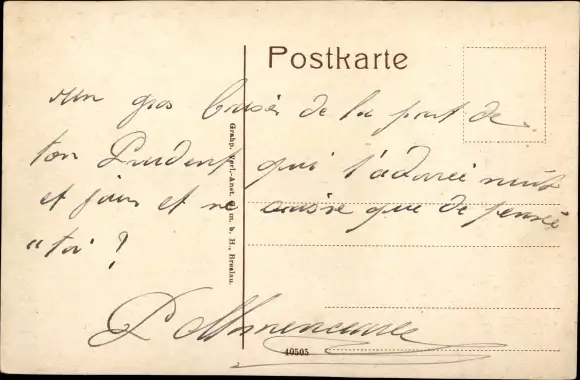 Postkarte
un gros baiser de la part de
ton Prudent qui t'adore nuit
et jour et ne cesse que de pensé
"toi ?
Graph. Verl.-Anst. G. m. b. H., Breslau.
40505